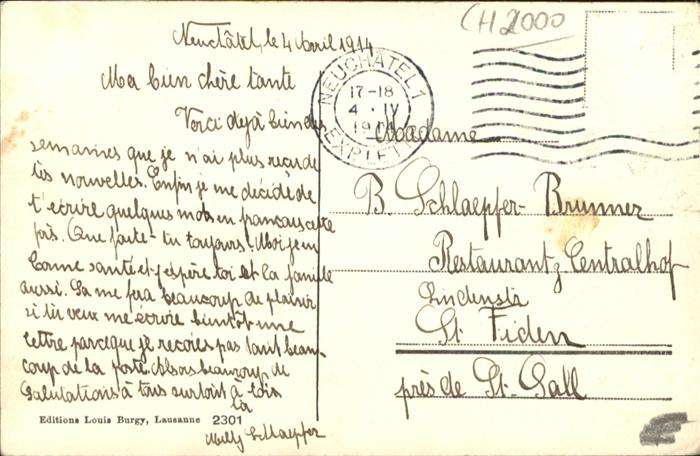 CH 2000
Neuchâtel, le 4 Avril 1914
Ma bien chère tante
Voici dejà bien des
semaines que je n'ai plus reçu de
tes nouvelles. Enfin je me décidé de
t'écrire quelques mots en français cette
fois. Que faite-tu toujours. Moi je en
bonne santé et j'éspère toi et la famille
aussi. Sa me fera beaucoup de plaisir
si tu veux me écrire bientôt une
lettre parceque je recoies pas tant beau-
coup de la poste. Alsors beaucoup de
Salutations à tous surtout à toi
ta
Milly Schlaepfer
Editions Louis Burgy, Lausanne 2301
NEUCHÂTEL 1
17-18
4 . IV
EXP. LET.
Madame
B. Schlaepfer-Brunner
Restaurant z Centralhof
Lindenstr
St. Fiden
près de St-Gall